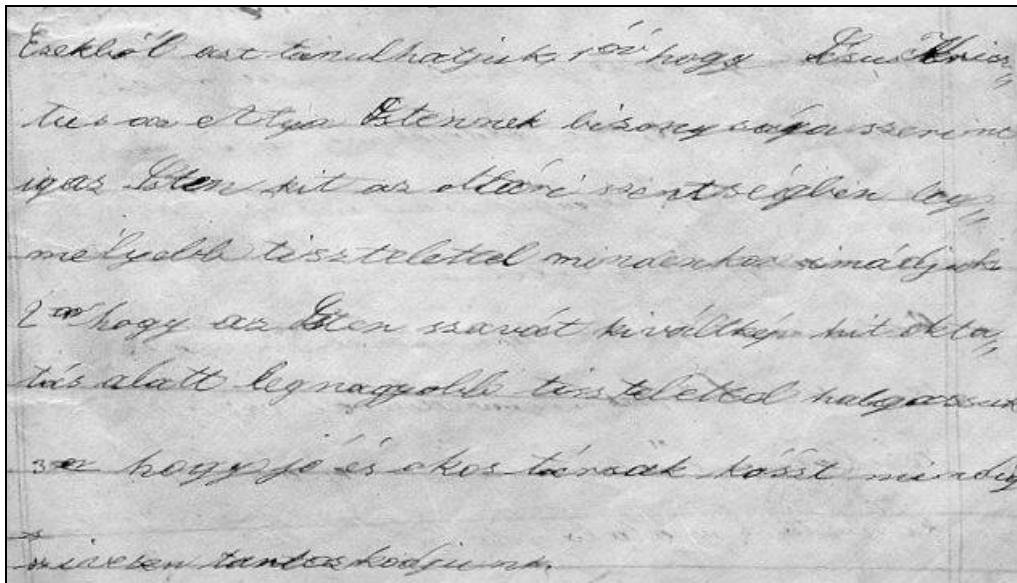 Ezekből azt tanulhatjuk, 1ör hogy Jésus Kris„
tus az Atya Istennek bizonysága szerint
igaz Isten kit az oltári szentségben leg„
mélyebb tisztelettel mindenkor imádjuk
2or hogy az Isten szavát kiváltkép hit okta„
tás alatt legnagyobb tisztelettel halgassuk
3or hogy jó és okos társak közt mindig
szivesen tartozkodjunk.